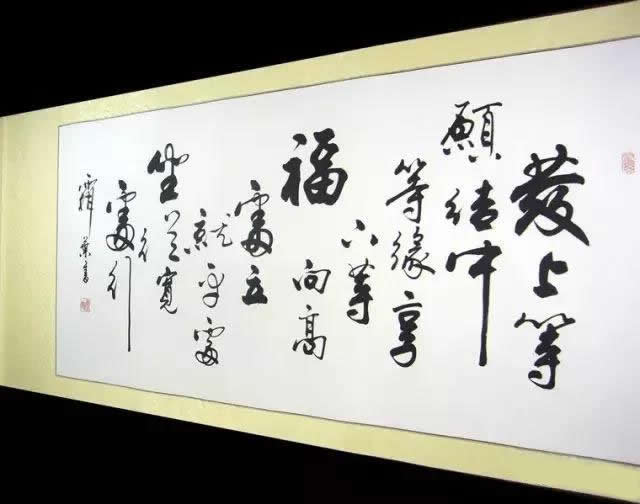 發上等
願結中
等緣享
下等
福向高
處立
就平處
坐從寬
處行
葉書